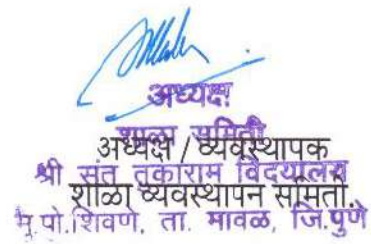 अध्यक्ष
शाळा समिती
अध्यक्ष / व्यवस्थापक
श्री संत तुकाराम विद्यालय
शाळा व्यवस्थापन समिती.
मु.पो.शिवणे, ता. मावळ, जि.पुणे